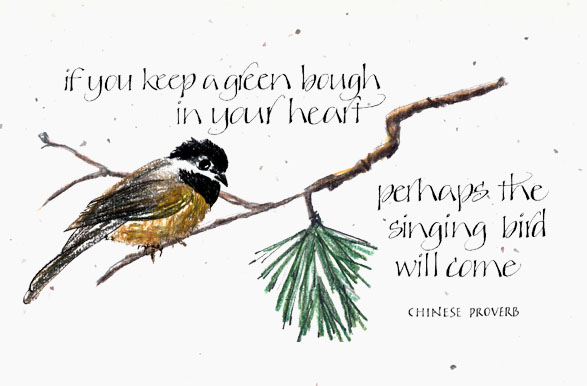 if you keep a green bough
in your heart
perhaps the
singing bird
will come
CHINESE PROVERB